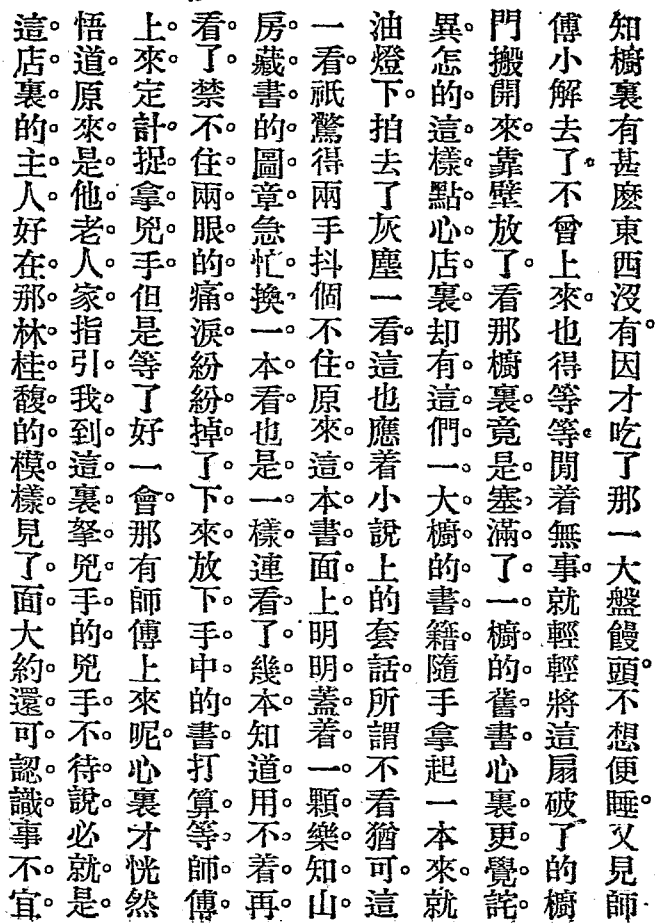 知櫥裏有甚麽東西沒有。因才吃了那一大盤饅頭。不想便睡。又見師
傅小解去了。不曾上來。也得等等。閒着無事。就輕輕將這扇破了的櫥
門搬開來。靠壁放了。看那櫥裏。竟是塞滿了一櫥的舊書。心裏更覺詫
異。怎的這樣點心店裏。却有這們一大櫥的書籍。隨手拿起一本來。就
油燈下。拍去了灰塵一看。這也應着小說上的套話。所謂不看猶可。這
一看。祇驚得兩手抖個不住。原來這本書面上。明明蓋着一顆樂知山
房藏書的圖章。急忙換一本看。也是一樣。連看了幾本。知道用不着再
看了。禁不住兩眼的痛淚。紛紛掉了下來。放下手中的書。打算等師傅
上來。定計捉拿兇手。但是等了好一會。那有師傅上來呢。心裏才恍然
悟道。原來是他老人家指引我到這裏拏兇手的。兇手不待說。必就是
這店裏的主人。好在那林桂馥的模樣。見了面。大約還可認識。事不宜